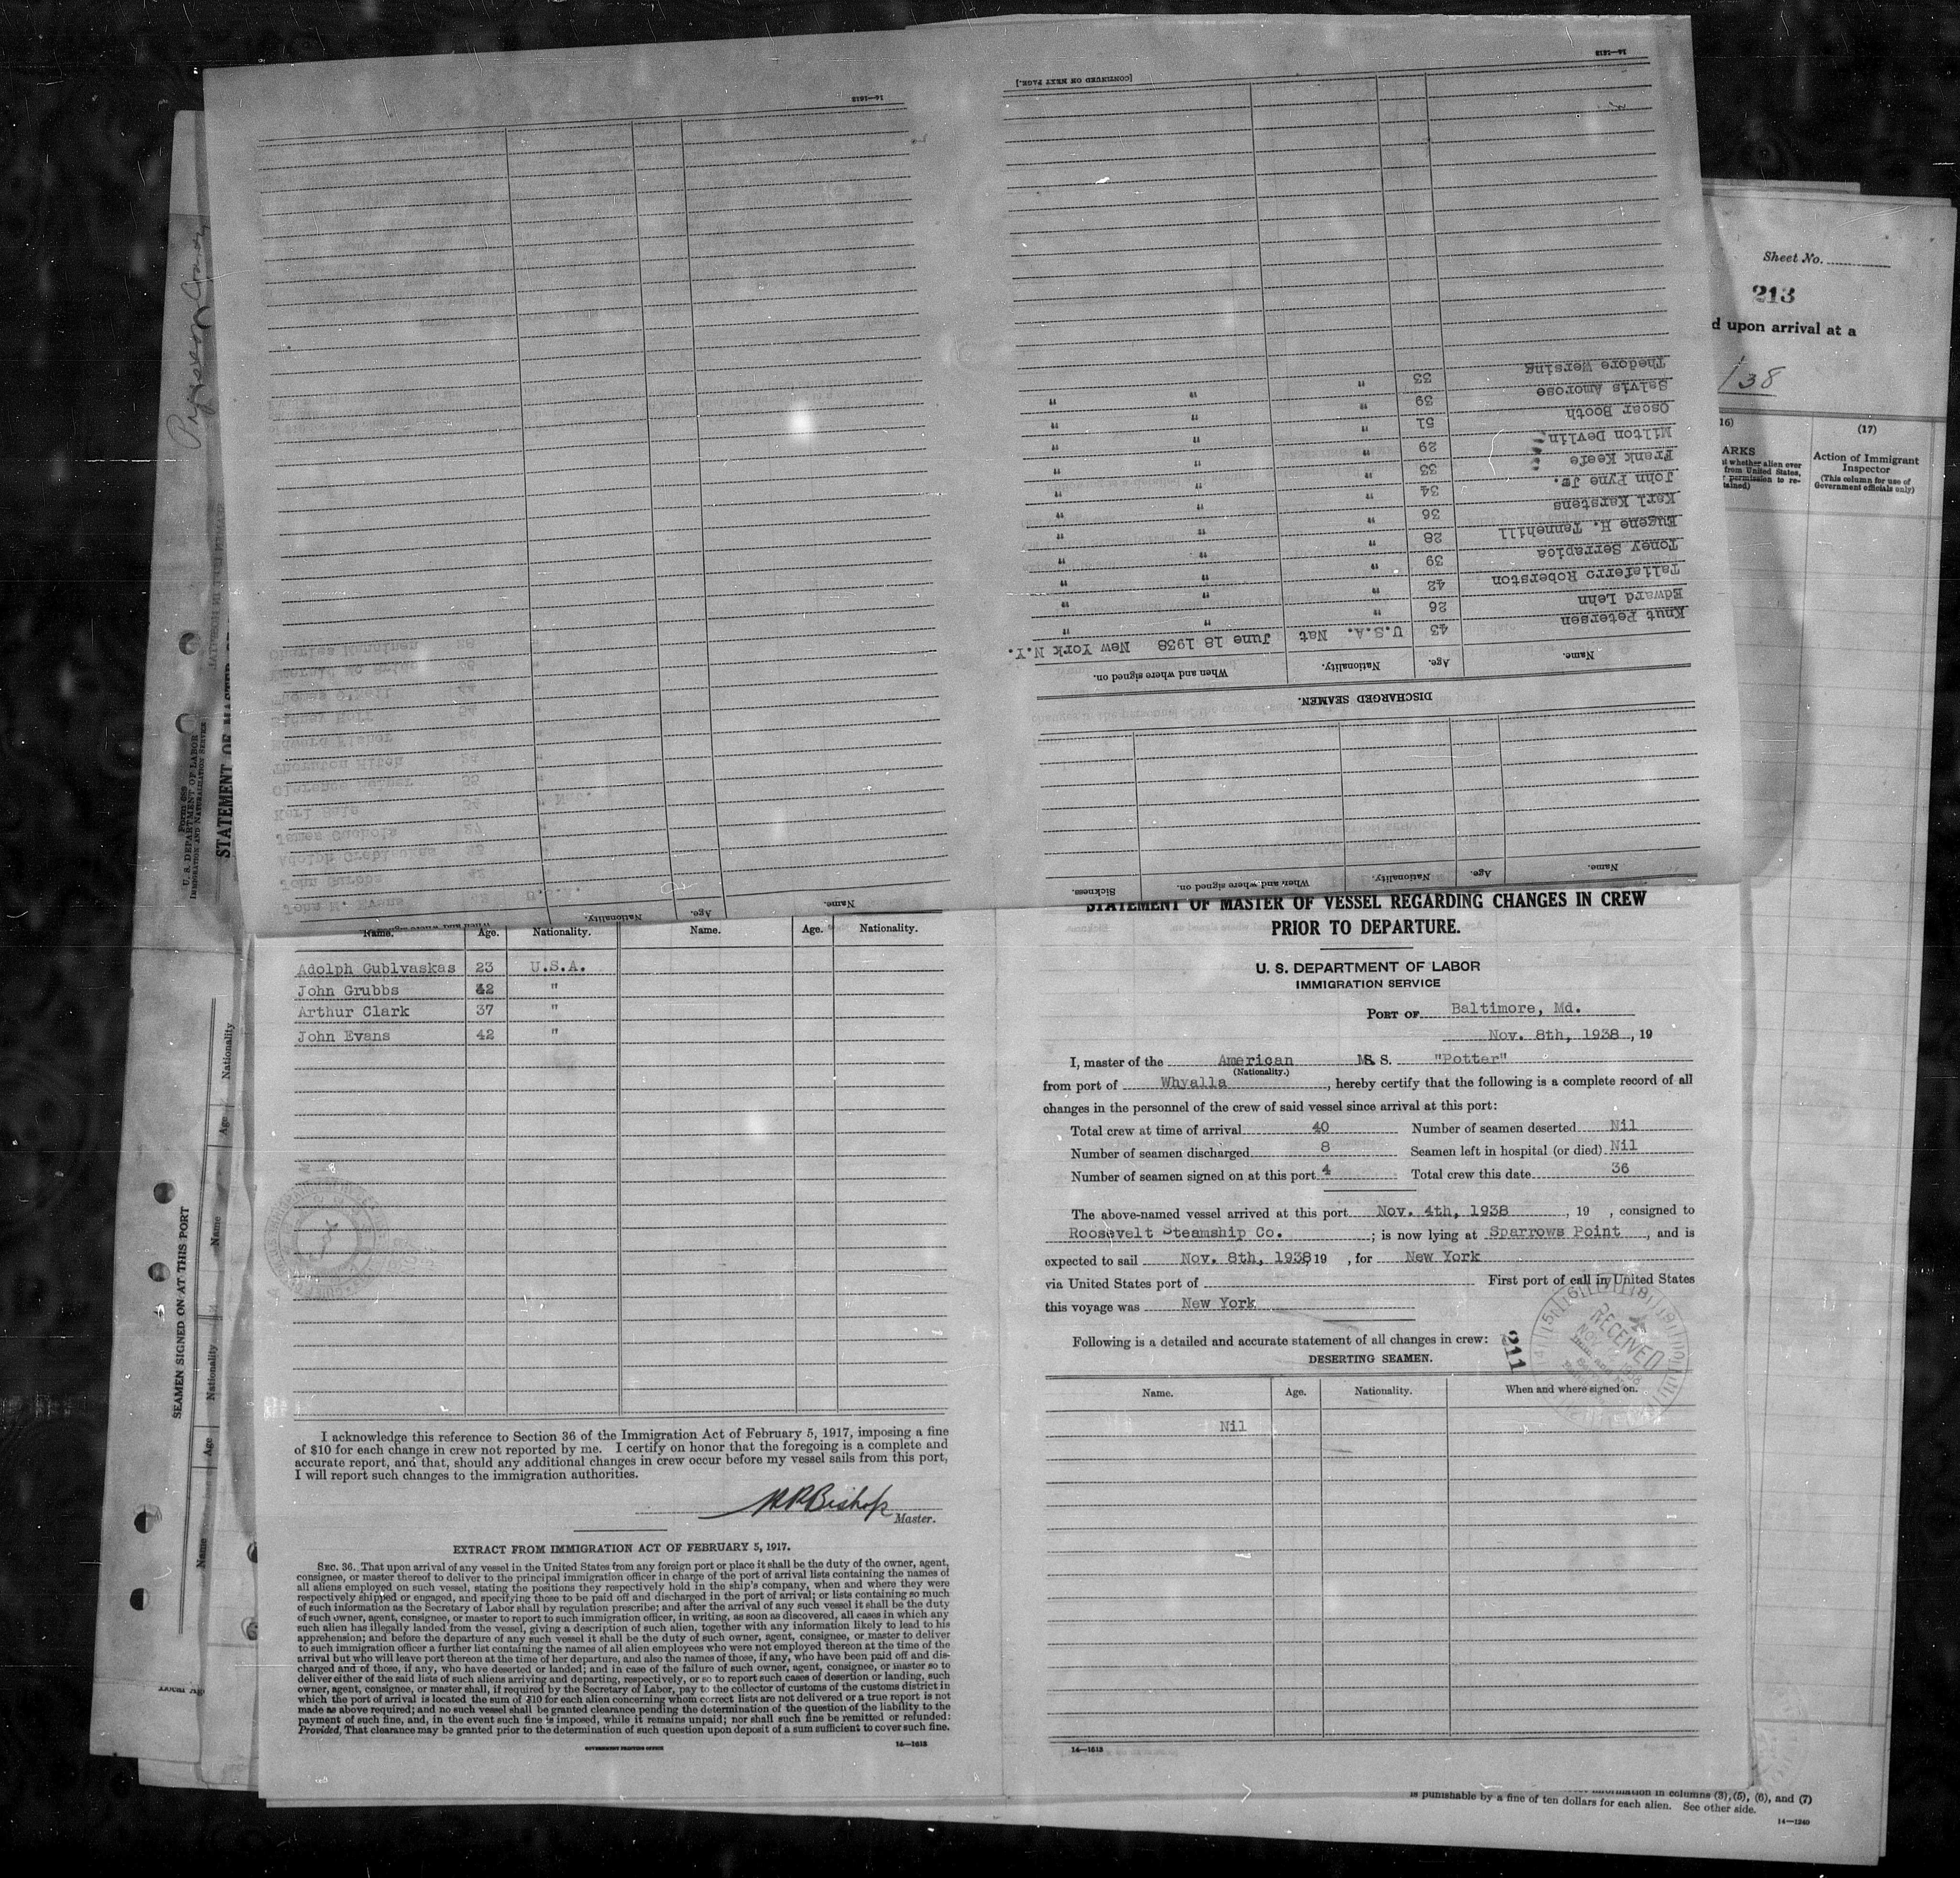 14—1613
[CONTINUED ON NEXT PAGE.]
14—1613
Thedore Wersing 33 "
Salvis Amorose 39 " " "
Oscar Booth 51 " " "
Milton Devlin 29 " " "
Frank Keefe 33 " " "
John Pyne Jr. 34 " " "
Karl Karstens 36 " " "
Eugene H. Tannehill 28 " " "
Toney Serrapica 39 " " "
Taliaferro Roberston 42 " " "
Edward Lehn 26 " " "
Knut Petersen 43 U.S.A. Nat June 18 1938 New York N.Y.
Name. Age. Nationality. When and where signed on.
DISCHARGED SEAMEN.
Name. Age. Nationality. When and where signed on. Sickness.
Name. Age. Nationality.
Sheet No.
213
d upon arrival at a
/38
16)
(17)
ARKS
Action of Immigrant
Inspector
(This column for use of
Government officials only)
t whether alien over
from United States,
permission to re-
tained)
Form 689
U. S. DEPARTMENT OF LABOR
IMMIGRATION AND NATURALIZATION SERVICE
STATEMENT OF MASTER OF
SEAMEN SIGNED ON AT THIS PORT
Name Age Nationality Name Age Nationality
Name. Age. Nationality. Name. Age. Nationality.
Adolph Gublvaskas 23 U.S.A.
John Grubbs 42 "
Arthur Clark 37 "
John Evans 42 "
I acknowledge this reference to Section 36 of the Immigration Act of February 5, 1917, imposing a fine
of $10 for each change in crew not reported by me. I certify on honor that the foregoing is a complete and
accurate report, and that, should any additional changes in crew occur before my vessel sails from this port,
I will report such changes to the immigration authorities.
Bishop
Master.
EXTRACT FROM IMMIGRATION ACT OF FEBRUARY 5, 1917.
SEC. 36. That upon arrival of any vessel in the United States from any foreign port or place it shall be the duty of the owner, agent,
consignee, or master thereof to deliver to the principal immigration officer in charge of the port of arrival lists containing the names of
all aliens employed on such vessel, stating the positions they respectively hold in the ship's company, when and where they were
respectively shipped or engaged, and specifying those to be paid off and discharged in the port of arrival; or lists containing so much
of such information as the Secretary of Labor shall by regulation prescribe; and after the arrival of any such vessel it shall be the duty
of such owner, agent, consignee, or master to report to such immigration officer, in writing, as soon as discovered, all cases in which any
such alien has illegally landed from the vessel, giving a description of such alien, together with any information likely to lead to his
apprehension; and before the departure of any such vessel it shall be the duty of such owner, agent, consignee, or master to deliver
to such immigration officer a further list containing the names of all alien employees who were not employed thereon at the time of the
arrival but who will leave port thereon at the time of her departure, and also the names of those, if any, who have been paid off and dis-
charged and of those, if any, who have deserted or landed; and in case of the failure of such owner, agent, consignee, or master so to
deliver either of the said lists of such aliens arriving and departing, respectively, or so to report such cases of desertion or landing, such
owner, agent, consignee, or master shall, if required by the Secretary of Labor, pay to the collector of customs of the customs district in
which the port of arrival is located the sum of $10 for each alien concerning whom correct lists are not delivered or a true report is not
made as above required; and no such vessel shall be granted clearance pending the determination of the question of the liability to the
payment of such fine, and, in the event such fine is imposed, while it remains unpaid; nor shall such fine be remitted or refunded:
Provided, That clearance may be granted prior to the determination of such question upon deposit of a sum sufficient to cover such fine.
GOVERNMENT PRINTING OFFICE 14—1613
STATEMENT OF MASTER OF VESSEL REGARDING CHANGES IN CREW
PRIOR TO DEPARTURE.
U. S. DEPARTMENT OF LABOR
IMMIGRATION SERVICE
PORT OF Baltimore, Md.
Nov. 8th, 1938, 19
I, master of the American M.S. S. "Potter"
(Nationality.)
from port of Whyalla, hereby certify that the following is a complete record of all
changes in the personnel of the crew of said vessel since arrival at this port:
Total crew at time of arrival 40 Number of seamen deserted Nil
Number of seamen discharged 8 Seamen left in hospital (or died) Nil
Number of seamen signed on at this port 4 Total crew this date 36
The above-named vessel arrived at this port Nov. 4th, 1938, 19 , consigned to
Roosevelt Steamship Co.; is now lying at Sparrows Point, and is
expected to sail Nov. 8th, 1938, 19 , for New York
via United States port of First port of call in United States
this voyage was New York
Following is a detailed and accurate statement of all changes in crew:
211
RECEIVED
DESERTING SEAMEN.
Name. Age. Nationality. When and where signed on.
Nil
14—1613
information in columns (3), (5), (6), and (7)
is punishable by a fine of ten dollars for each alien. See other side.
14—1240